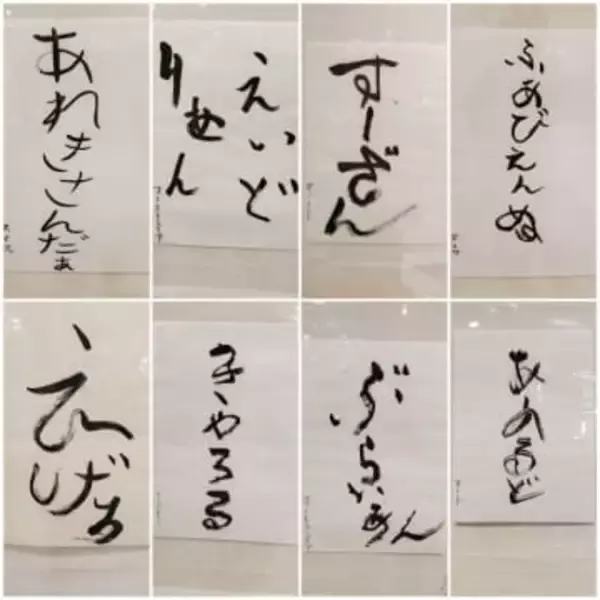 あれきさんだぁ
えいど
りあん
すーざん
ふぁびえんぬ
えーげる
きゃろる
ぶらいあん
あのるど